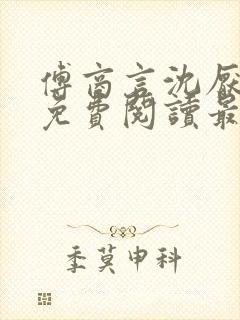 傅商言沈
免費閱讀最
季莫申科